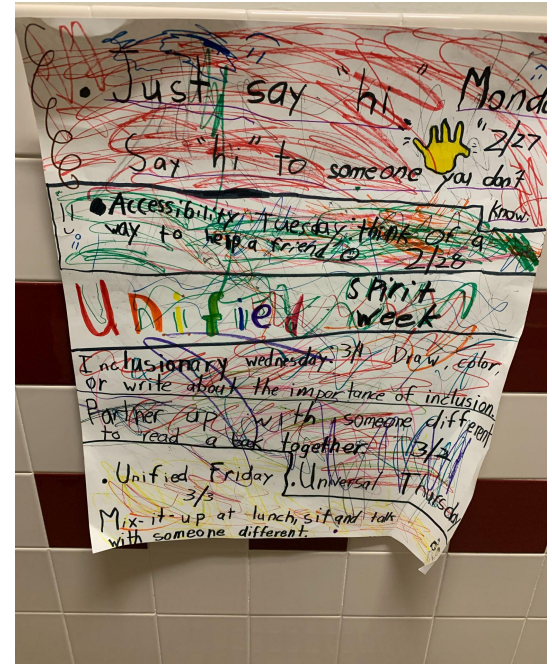 • Just say "hi" Monda
2/27
Say "hi" to someone you don't
know.
• Accessibility Tuesday think of a
way to help a friend ☺
2/28
Unified
Spirit
Week
Inclusionary wednesday. 3/1 Draw, color,
or write about the importance of inclusion.
Partner up with someone different
to read a book together. 3/2
• Universal Thursday
• Unified Friday
3/3
Mix-it-up at lunch, sit and talk
with someone different.